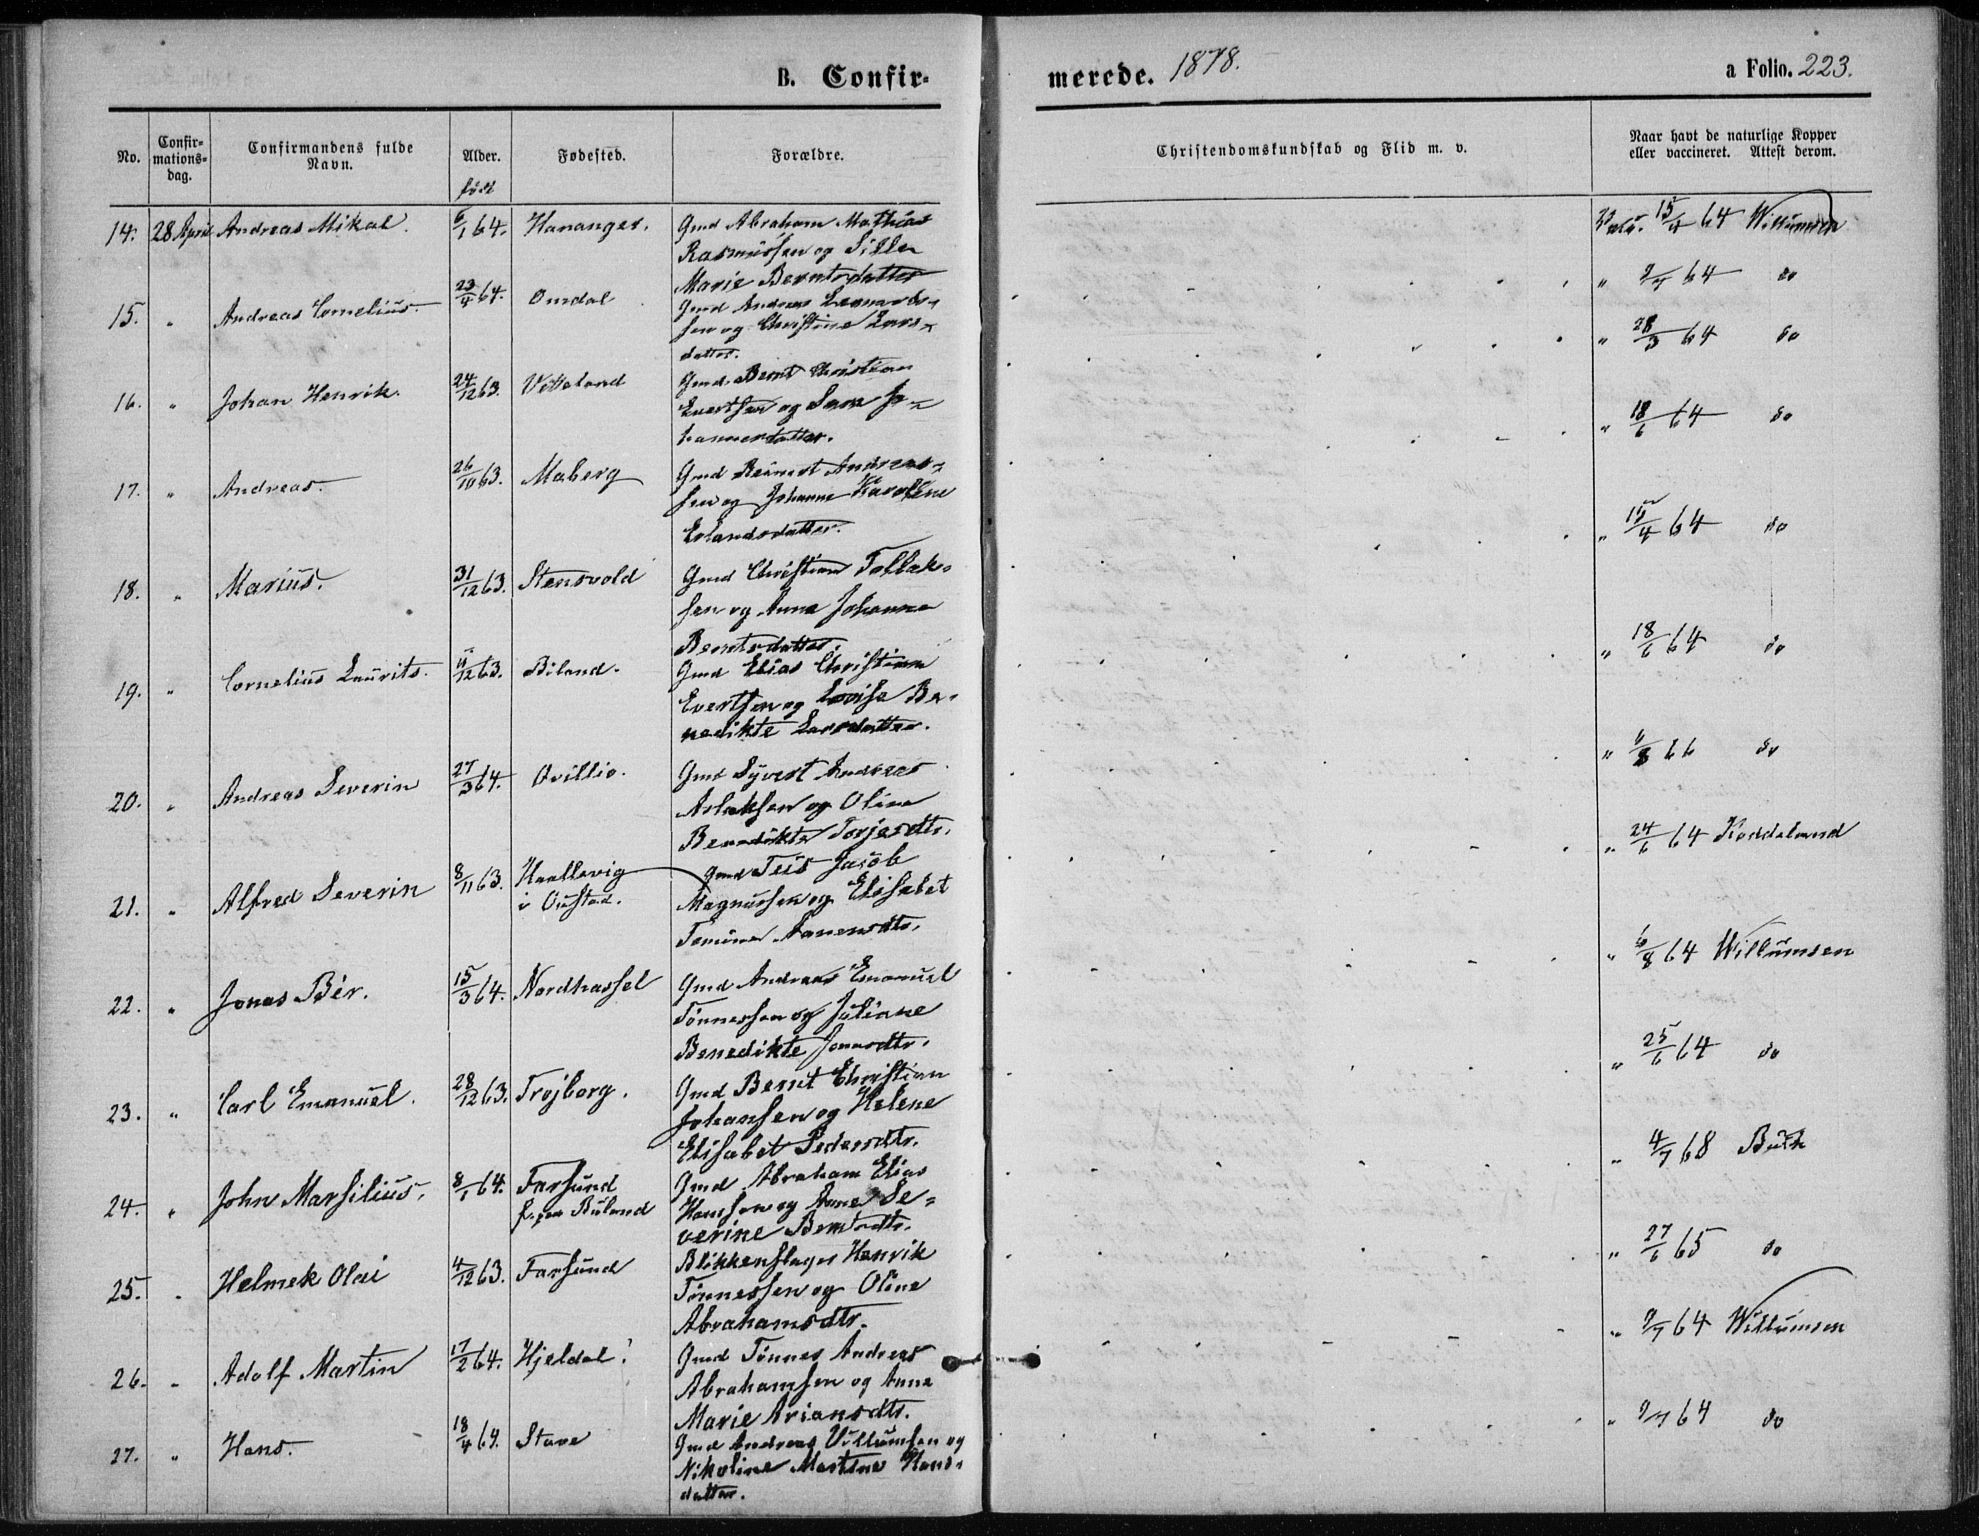 B. Confir-
merede. 1878.
a Folio. 223.
No.
Confir-
mations-
dag.
Confirmandens fulde
Navn.
Alder.
født
Fødested.
Forældre.
Christendomskundskab og Flid m. v.
Naar havt de naturlige Kopper
eller vaccineret. Attest derom.
14. 28 April Andreas Mikal. 6/1 64. Hananger. Gmd Abraham Mathias
Rasmussen og Sille
Marie Berntsdatter
15/4 64 Willumsen
15. " Andreas Cornelius. 23/4 64. Omdal Gmd Andreas Leonards-
sen og Christine Lars-
datter.
" 9/7 64 do
16. " Johan Henrik. 24/12 63. Vetteland Gmd. Bernt Christian
Evertsen og Sara Jo-
hannesdatter.
" 28/3 64 do
17. " Andreas. 26/10 63. Maberg Gmd Reinert Andreas-
sen og Johanne Karoline
Erlandsdatter.
" 18/6 64 do
18. " Marius. 31/12 63. Stensvold Gmd Christian Tollak-
sen og Anna Johanna
Berntsdatter.
" 15/4 64 do
19. " Cornelius Laurits. 11/12 63. Biland. Gmd Elias Christian
Evertsen og Lovise Be-
nedikte Larsdatter.
" 18/6 64 do
20. " Andreas Severin 27/3 64. Ovillio. Gmd Syvert Andreas
Aslaksen og Olina
Benedikte Torjesdtr.
" 66 do
21. " Alfred Severin 8/11 63. Haallevig
i Oustad.
Gmd Teis Jacob
Magnussen og Elisabet
Tomine Aanensdtr.
" 24/6 64 Koddeland
22. " Jonas Bér. 15/3 64. Nordhassel Gmd Andreas Emanuel
Tønnessen og Juliane
Benedikte Jonasdtr.
" 6/8 64 Willumsen
23. " Carl Emanuel. 28/12 63. Trojborg. Gmd Bernt Christian
Johansen og Helene
Elisabet Pedersdtr.
" 25/6 64 do
24. " John Marsilius. 8/1 64. Farsund
f. paa Buland
Gmd Abraham Elias
Hansen og Anne Se-
verine Berntsdtr.
" 4/7 68 Buch
25. " Helmek Olai 4/12 63. Farsund Blikkenslager Henrik
Tønnessen og Oline
Abrahamsdtr.
" 27/6 65 do
26. " Adolf Martin 17/2 64. Hjeldal. Gmd Tønnes Andreas
Abrahamsen og Anna
Marie Ariansdtr.
" 9/7 64 Willumsen
27. " Hans. 18/4 64. Stave Gmd Andreas Villumsen og
Nikoline Martine Hans-
datter.
" 9/7 64 do